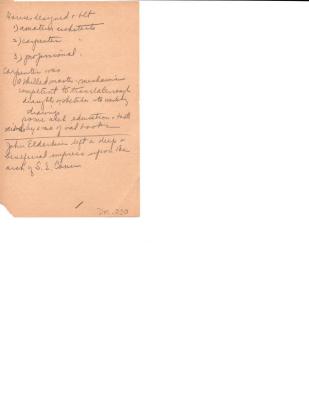 Houses designed & blt
1) amateur architects
2) carpenter "
3) professional.
Carpenter was
(1) skilled master-mechanician
competent to translate rough
draughts or sketches into working
drawings
some arch education & taste
aided by use of val books
John Elderkin left a deep &
beneficial impress upon the
arch of S. E. Conn
Dr. 230